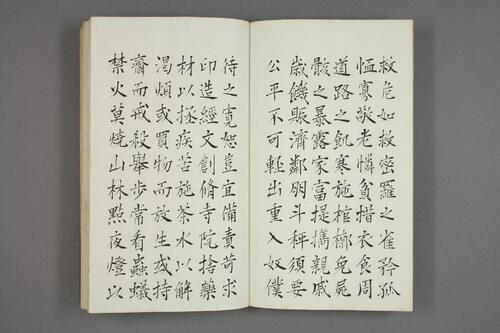 救危如救密羅之雀矜孤
恤寡敬老憐貧措衣食周
道路之飢寒施棺槨免屍
骸之暴露家富提攜親戚
歲饑賑濟鄰朋斗秤須要
公平不可輕出重入奴僕
待之寬恕豈宜備責苛求
印造經文創脩寺院捨藥
材以拯疾苦施茶水以解
渴煩或買物而放生或持
齋而戒殺舉步常看蟲蟻
禁火莫燒山林點夜燈以